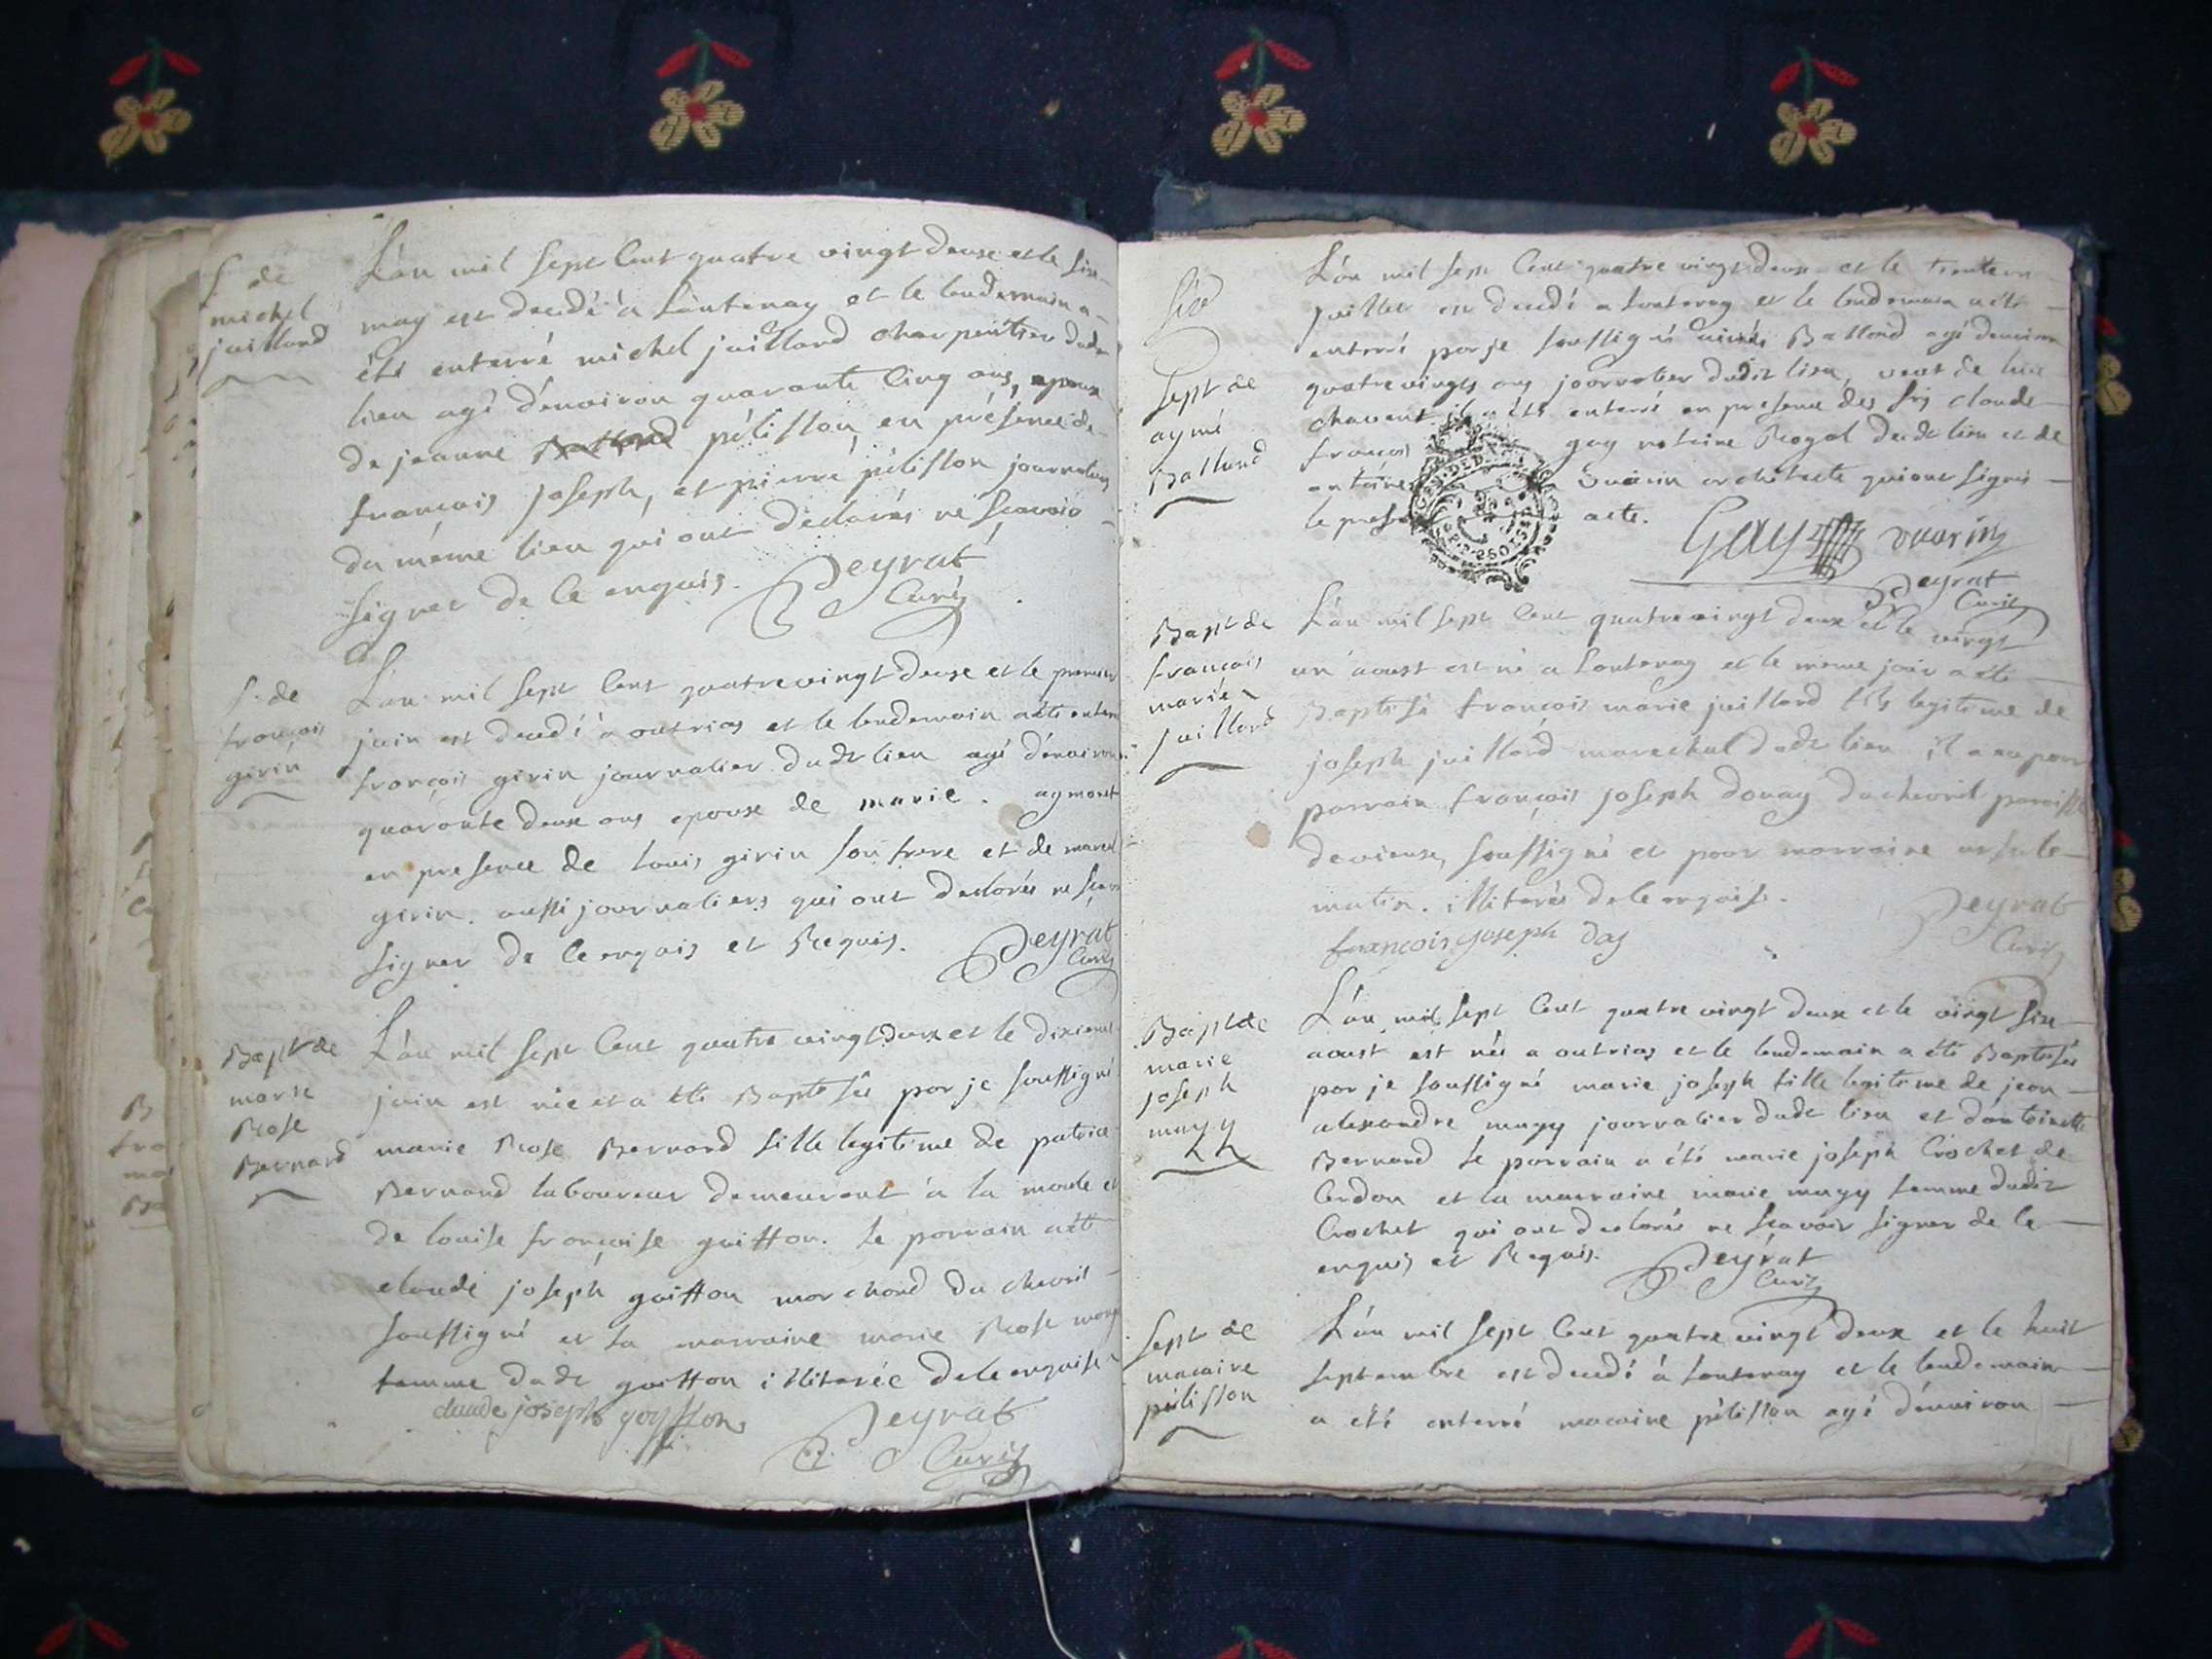 S. de
michel
juilland
L'an mil sept Cent quatre vingt deux et le six
may est decedé à Lantenay et le lendemain a
été enterré michel juilland charpentier dudit
lieu agé d'environ quarante Cinq ans, epoux
de jeanne pélisson, en présence de
françois joseph, et pierre pélisson journaliers
du même lieu qui ont déclarés ne scavoir
signer de ce enquis. Peyrat
Curé
S. de
françois
girin
L'an mil sept Cent quatre vingt deux et le premier
juin est decedé à outrias et le lendemain a été enterré
françois girin journalier dudt lieu agé d'environ
quarante deux ans epoux de marie. aymont
en presence de louis girin son frere et de marcel
girin. aussi journaliers qui ont declarés ne scavoir
signer de ce enquis et Requis. Peyrat
Curé
Bapt de
marie
Rose
Bernard
L'an mil sept Cent quatre vingt deux et le dixieme
juin est née et a été Baptisée par je soussigné
marie Rose Bernard fille legitime de patrice
Bernard laboureur demeurant à la moule et
de louise françoise guitton. le parrain a été
claude joseph guitton marchand du chevril
soussigné et la marraine marie Rose
femme dudt guitton illiterée de ce enquise
claude joseph goytton Peyrat
Curé
Sept de
aymé
Balland
L'an mil sept Cent quatre vingt deux et le trente un
juillet est decedé a Lantenay et le lendemain a été
enterré par je soussigné aimé Balland agé denviron
quatre vingts ans journalier dudit lieu, veuf de
chavent il a été enterré en presence des srs claude
françois gay notaire Royal dudt lieu et de
antoine Vuarin architecte qui ont signés
le present acte.
Gay vuarin
Peyrat
Curé
Bapt de
françois
marie
juilland
L'an mil sept Cent quatre vingt deux et le vingt
un aoust est né a Lantenay et le meme jour a été
Baptisé françois marie juilland fils legitime de
joseph juilland marechal dudt lieu il a eu pour
parrain françois joseph du chevril paroisse
de vieux, soussigné et pour marraine ursule
matin. illiterés de ce enquise.
françois joseph Peyrat
Curé
Bapt de
marie
joseph
mugy
L'an mil sept Cent quatre vingt deux et le vingt six
aoust est née a outrias et le lendemain a été Baptisée
par je soussigné marie joseph fille legitime de jean
alexandre mugy journalier dudt lieu et d'antoinette
Bernard le parrain a été marie joseph Crochet de
Cerdon et la marraine marie mugy femme dudit
Crochet qui ont declarés ne scavoir signer de ce
enquis et Requis. Peyrat
Curé
Sept de
macaire
pélisson
L'an mil sept Cent quatre vingt deux et le huit
septembre est decedé à Lantenay et le lendemain
a été enterré macaire pélisson agé d'environ